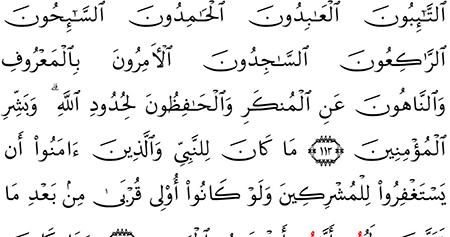 ٱلتَّٰٓئِبُونَ ٱلْعَٰبِدُونَ ٱلْحَٰمِدُونَ ٱلسَّٰٓئِحُونَ
ٱلرَّٰكِعُونَ ٱلسَّٰجِدُونَ ٱلْءَامِرُونَ بِٱلْمَعْرُوفِ
وَٱلنَّاهُونَ عَنِ ٱلْمُنكَرِ وَٱلْحَٰفِظُونَ لِحُدُودِ ٱللَّهِ ۗ وَبَشِّرِ
ٱلْمُؤْمِنِينَ ﴿١١٣﴾ مَا كَانَ لِلنَّبِىِّ وَٱلَّذِينَ ءَامَنُوٓا۟ أَن
يَسْتَغْفِرُوا۟ لِلْمُشْرِكِينَ وَلَوْ كَانُوٓا۟ أُو۟لِى قُرْبَىٰ مِنۢ بَعْدِ مَا